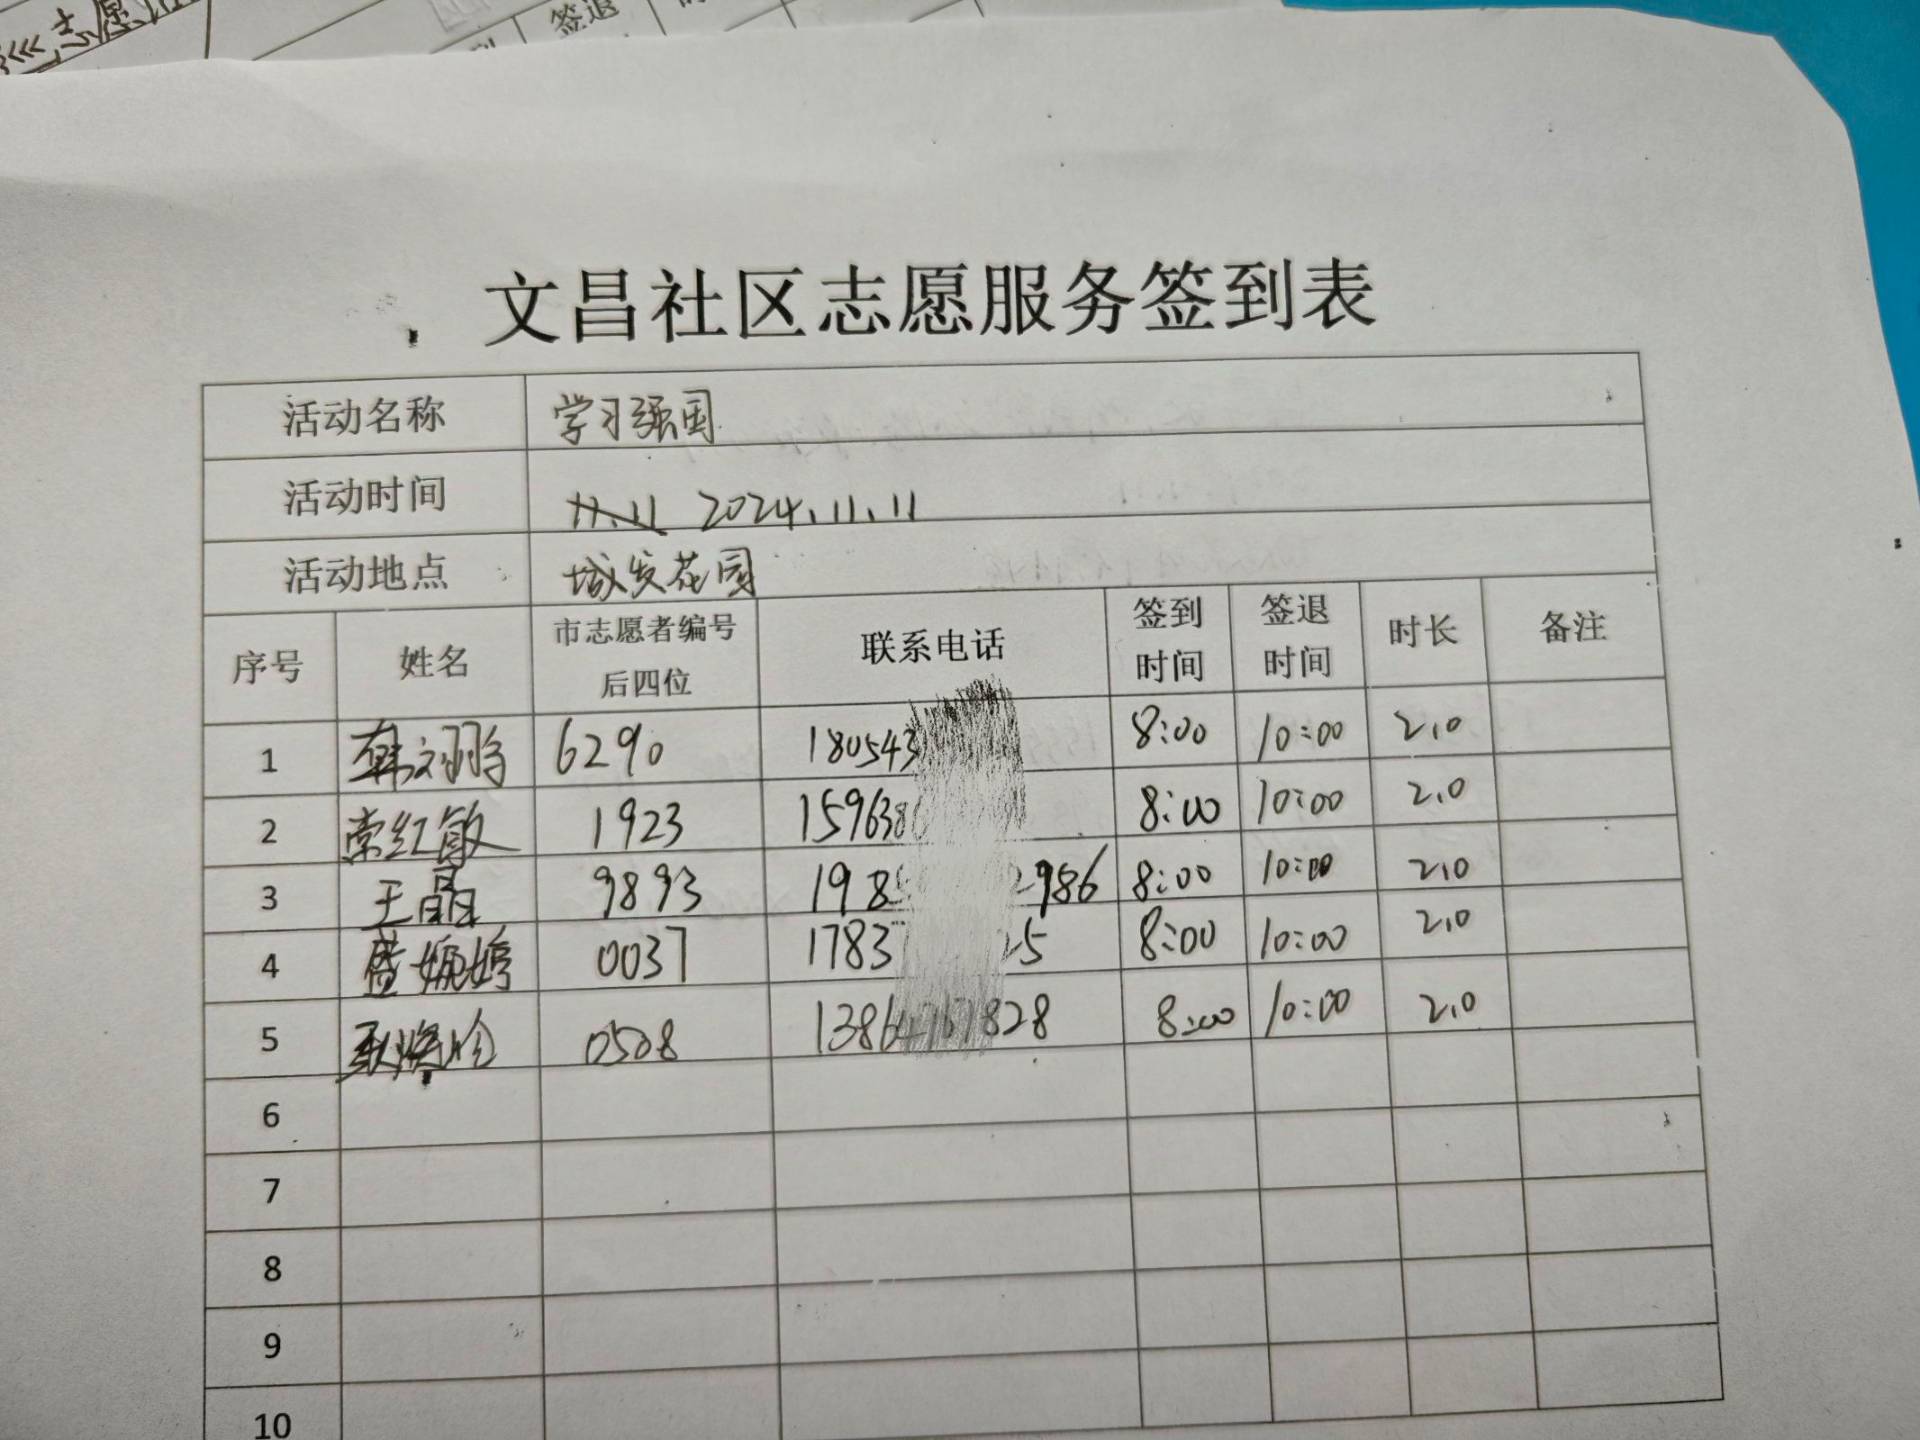 志愿
签退
文昌社区志愿服务签到表
活动名称 学习强国
活动时间 11.11 2024.11.11
活动地点 城发花园
序号 姓名 市志愿者编号后四位 联系电话 签到时间 签退时间 时长 备注
1 6290 180543 8:00 10:00 2.0
2 常红敏 1923 159638 8:00 10:00 2.0
3 王晶 9893 198 986 8:00 10:00 2.0
4 0037 1783 5 8:00 10:00 2.0
5 0508 1386 828 8:00 10:00 2.0
6
7
8
9
10